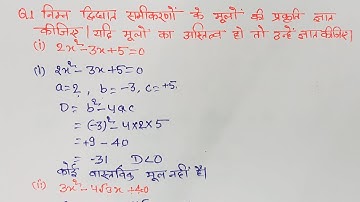 Q.1 निम्न द्विघात समीकरणों के मूलों की प्रकृति ज्ञात
कीजिए। यदि मूलों का अस्तित्व हो तो उन्हें ज्ञात कीजिए।
(i) 2x²-3x+5=0
(i) 2x²-3x+5=0
a=2, b=-3, c=+5.
D= b²-4ac
= (-3)²-4×2×5
= +9-40
= -31 D<0
कोई वास्तविक मूल नहीं है।
(ii) 3x²-4√3x+4=0